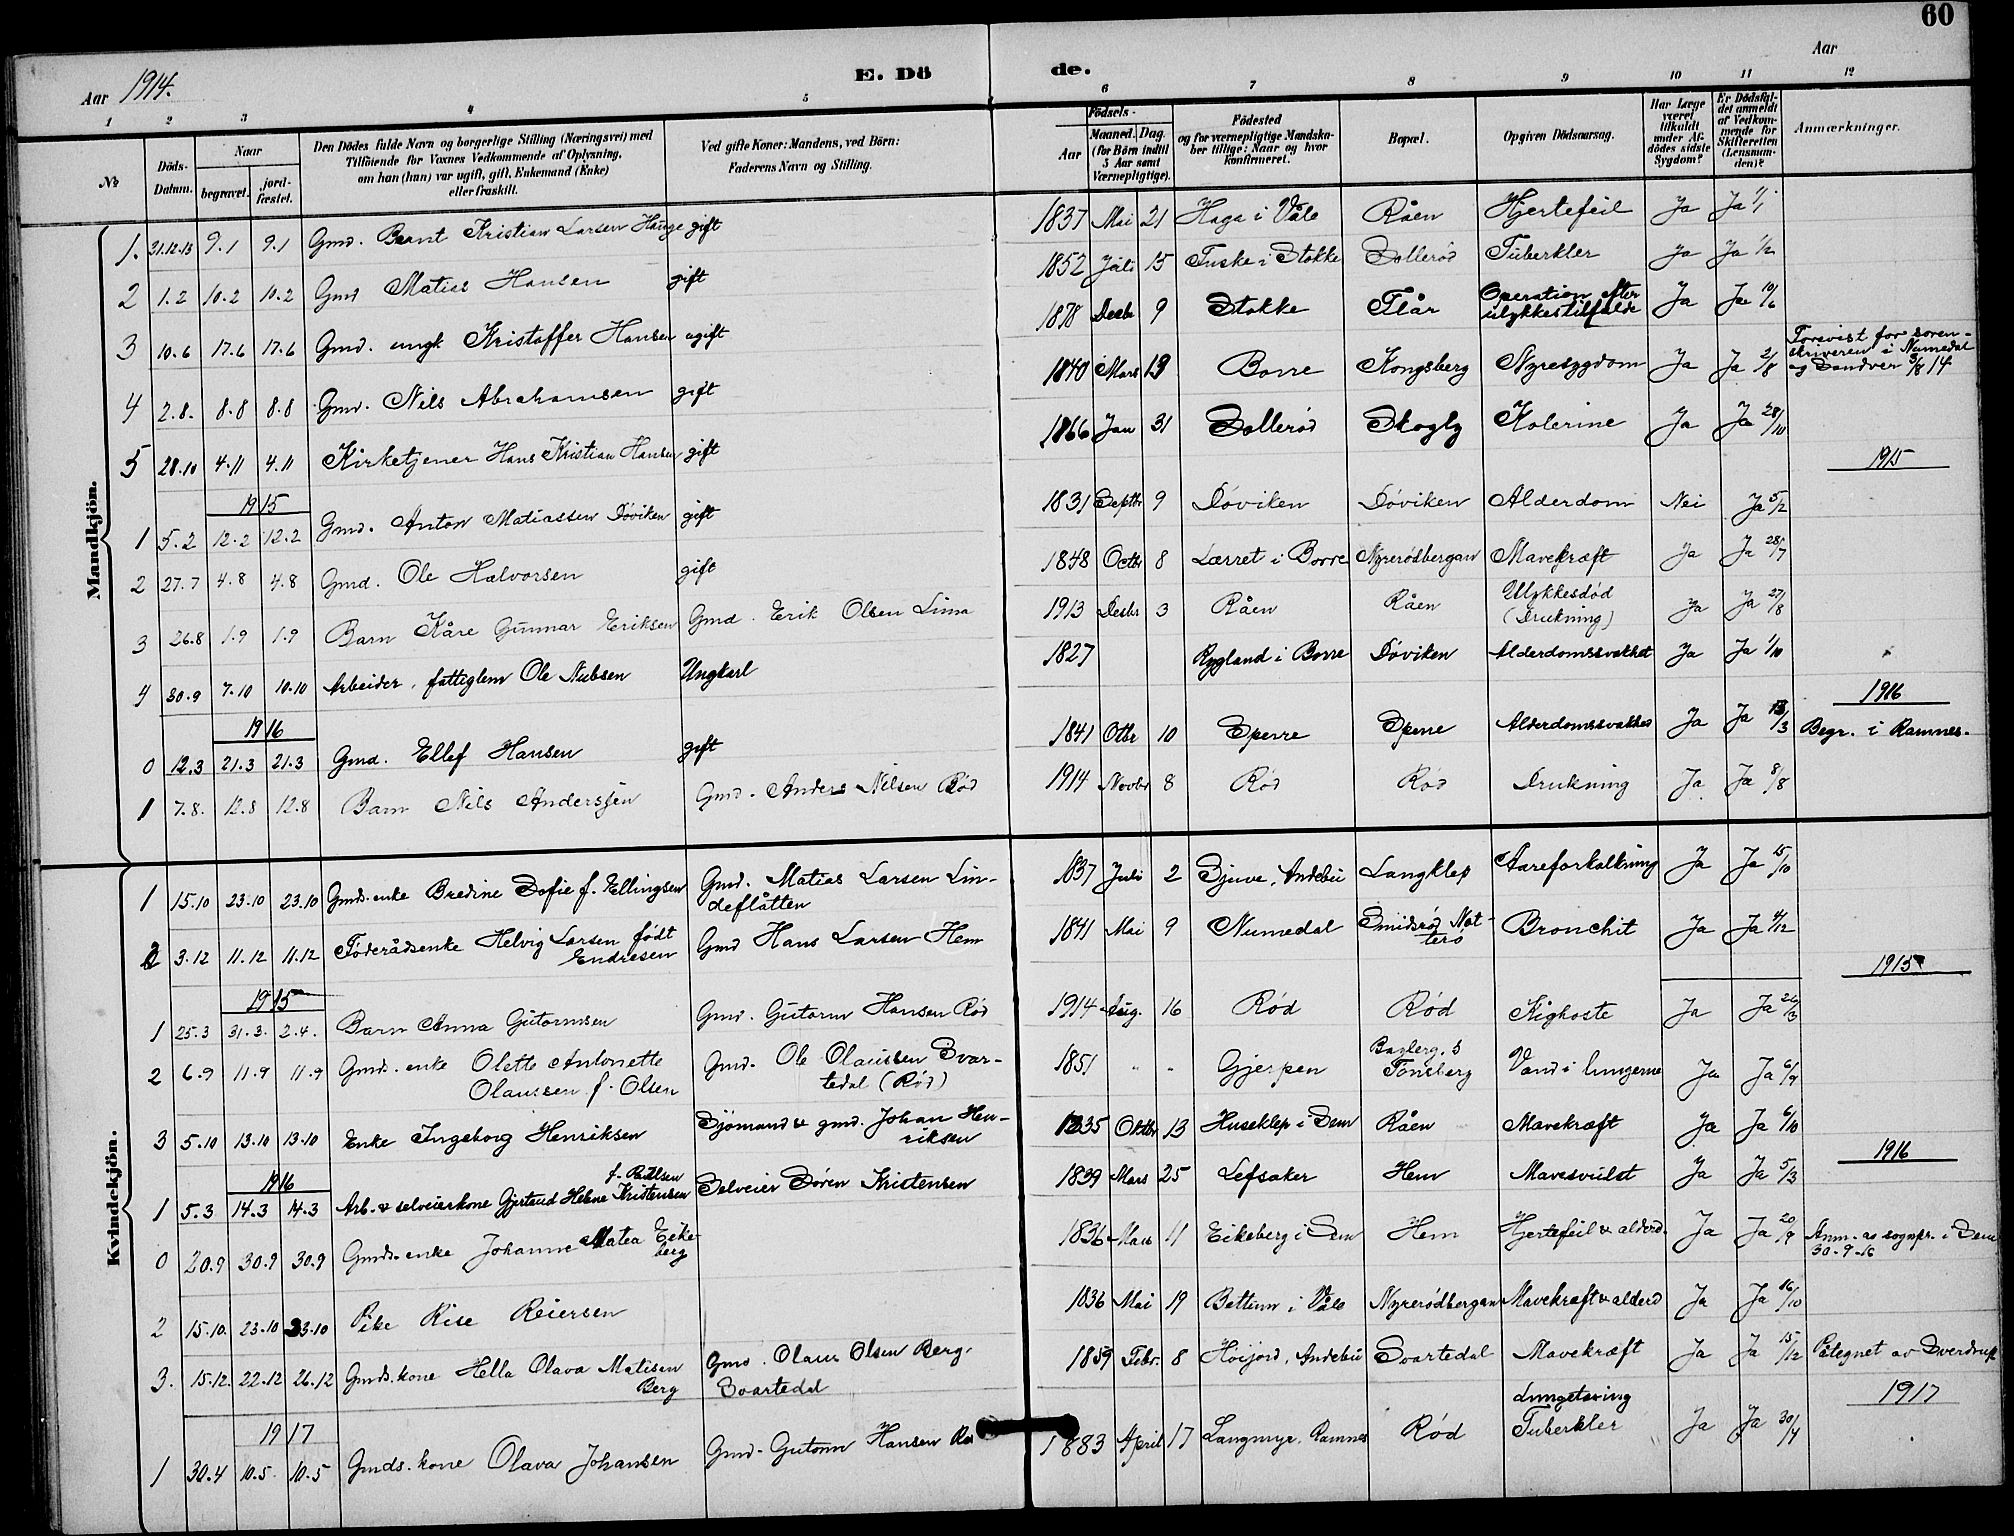 60
Aar 1914.
E. Dö de.
Aar
1 2 3 4 5 6 7 8 9 10 11 12
№
Döds-Datum.
Naar
begravet.
jord-fæstet.
Den Dödes fulde Navn og borgerlige Stilling (Næringsvei) med
Tilföiende for Voxnes Vedkommende af Oplysning,
om han (hun) var ugift, gift, Enkemand (Enke)
eller fraskilt.
Ved gifte Koner: Mandens, ved Börn:
Faderens Navn og Stilling.
Födsels-
Aar
Maaned. Dag.
(for Börn indtil
5 Aar samt
Værnepligtige).
Födested
og for værnepligtige Mandska-
ber tillige: Naar og hvor
konfirmeret.
Bopæl.
Opgiven Dödsaarsag.
Har Læge
været
tilkaldt
under Af-
dödes sidste
Sygdom?
Er Dödsfal-
det anmeldt
af Vedkom-
mende for
Skifteretten
(Lensman-
den)?
Anmærkninger.
Mandkjön.
1. 31.12.13 9.1 9.1 Gmd. Bernt Kristian Larsen Hauge gift 1837 Mai 21 Haga i Våle Råen Hjertefeil Ja Ja 1/1
2 1.2 10.2 10.2 Gmd Matias Hansen gift 1852 Juli 15 Fuske i Stokke Sollerød Tuberkler Ja Ja 1/2
3 10.6 17.6 17.6 Gmd. ungk Kristoffer Hansen ugift 1878 Desbr 9 Stokke Flår Operation efter ulykkestilfælde Ja Ja 10/6
4 2.8. 8.8 8.8 Gmd. Nils Abrahamsen gift 1840 Mars 13 Borre Kongsberg Nyresygdom Ja Ja 2/8 Forevist for soren-
skriveren i Numedal
og Sandsver 3/8 14
5 28.10 4.11 4.11 Kirketjener Hans Kristian Hansen gift 1866 Jan 31 Sollerød Skogly Kolerine Ja Ja 28/10
1915 1915
1 5.2 12.2 12.2 Gmd. Anton Matiassen Døviken gift 1831 Septbr 9 Døviken Døviken Alderdom Nei Ja 5/2
2 27.7 4.8 4.8 Gmd. Ole Halvorsen gift 1848 Octbr 8 Lærret i Borre Nyrerødbergan Mavekræft Ja Ja 28/7
3 26.8 1.9 1.9 Barn Kåre Gunnar Eriksen Gmd. Erik Olsen Lima 1913 Desbr 3 Råen Råen Ulykkesdød
(Drukning) Ja Ja 27/8
4 30.9 7.10 10.10 Arbeider, fattiglem Ole Nubsen Ungkarl 1827 Rygland i Borre Døviken Alderdomssvakhet Ja Ja 1/10
1916 1916
0 12.3 21.3 21.3 Gmd. Ellef Hansen gift 1841 Otbr 10 Sperre Sperre Alderdomssvakhet Ja Ja 13/3 Begr. i Ramnes.
1 7.8. 12.8 12.8 Barn Nils Anderssen Gmd. Anders Nilsen Rød 1914 Novbr 8 Rød Rød Drukning Ja Ja 8/8
Kvindekjön.
1 15.10 23.10 23.10 Gmd. enke Bredine Sofie f. Ellingsen Gmd. Matias Larsen Lin-
deflåtten 1837 Juli 2 Sjuve, Andebu Langklep Aareforkalkning Ja Ja 15/10
2 3.12 11.12 11.12 Føderådsenke Helvig Larsen født
Endresen Gmd Hans Larsen Hem 1841 Mai 9 Numedal Smidsrød Not-
terø Bronchit Ja Ja 4/12
1915 1915
1 25.3 31.3. 2.4. Barn Anna Gutormsen Gmd. Gutorm Hansen Rød 1914 Aug. 16 Rød Rød Kighoste Ja Ja 26/3
2 6.9 11.9 11.9 Gmd. enke Olette Antonette
Olaussen f. Olsen Gmd. Ole Olaussen Svar-
tedal (Rød) 1851 " " Gjerpen Tønsberg Vand i lungerne Ja Ja 6/9
3 5.10 13.10 13.10 Enke Ingeborg Henriksen Sjömand & gmd. Johan Hen-
riksen 1835 Oktbr 13 Huseklep i Sem Råen Mavekræft Ja Ja 6/10
1916 1916
1 5.3 14.3 14.3 Arb. & selveierkone Gjertrud Helene Kristensen
f. Paulsen Selveier Sören Kristensen 1839 Mars 25 Lefsaker Hem Mavesvulst Ja Ja 5/3
0 20.9 30.9 30.9 Gmds. enke Johanne Matea Eike-
berg 1836 Mars 11 Eikeberg i Sem Hem Hjertefeil & alderd. Ja Ja 20/9 Anm. av sognepr. i Sem
30-9-16
2 15.10. 23.10 23.10 Pike Rise Reiersen 1836 Mai 19 Bettum i Våle Nyrerødbergan Mavekræft & alderd Ja Ja 16/10
3. 15.12. 22.12 26.12 Gmds. kone Hella Olava Matisen
Berg Gmd. Olaus Olsen Berg.
Svartedal 1859 Febr. 8 Höijord, Andebu Svartedal Mavekræft Ja Ja 15/12 Påtegnet av Sverdrup
1917 1917
1 30.4 10.5. 10.5 Gmds. kone Olava Johansen Gmd. Gutorm Hansen 1883 April 17 Langmyr, Ramnes Rød Lungetæring
Tuberkler Ja Ja 30/4